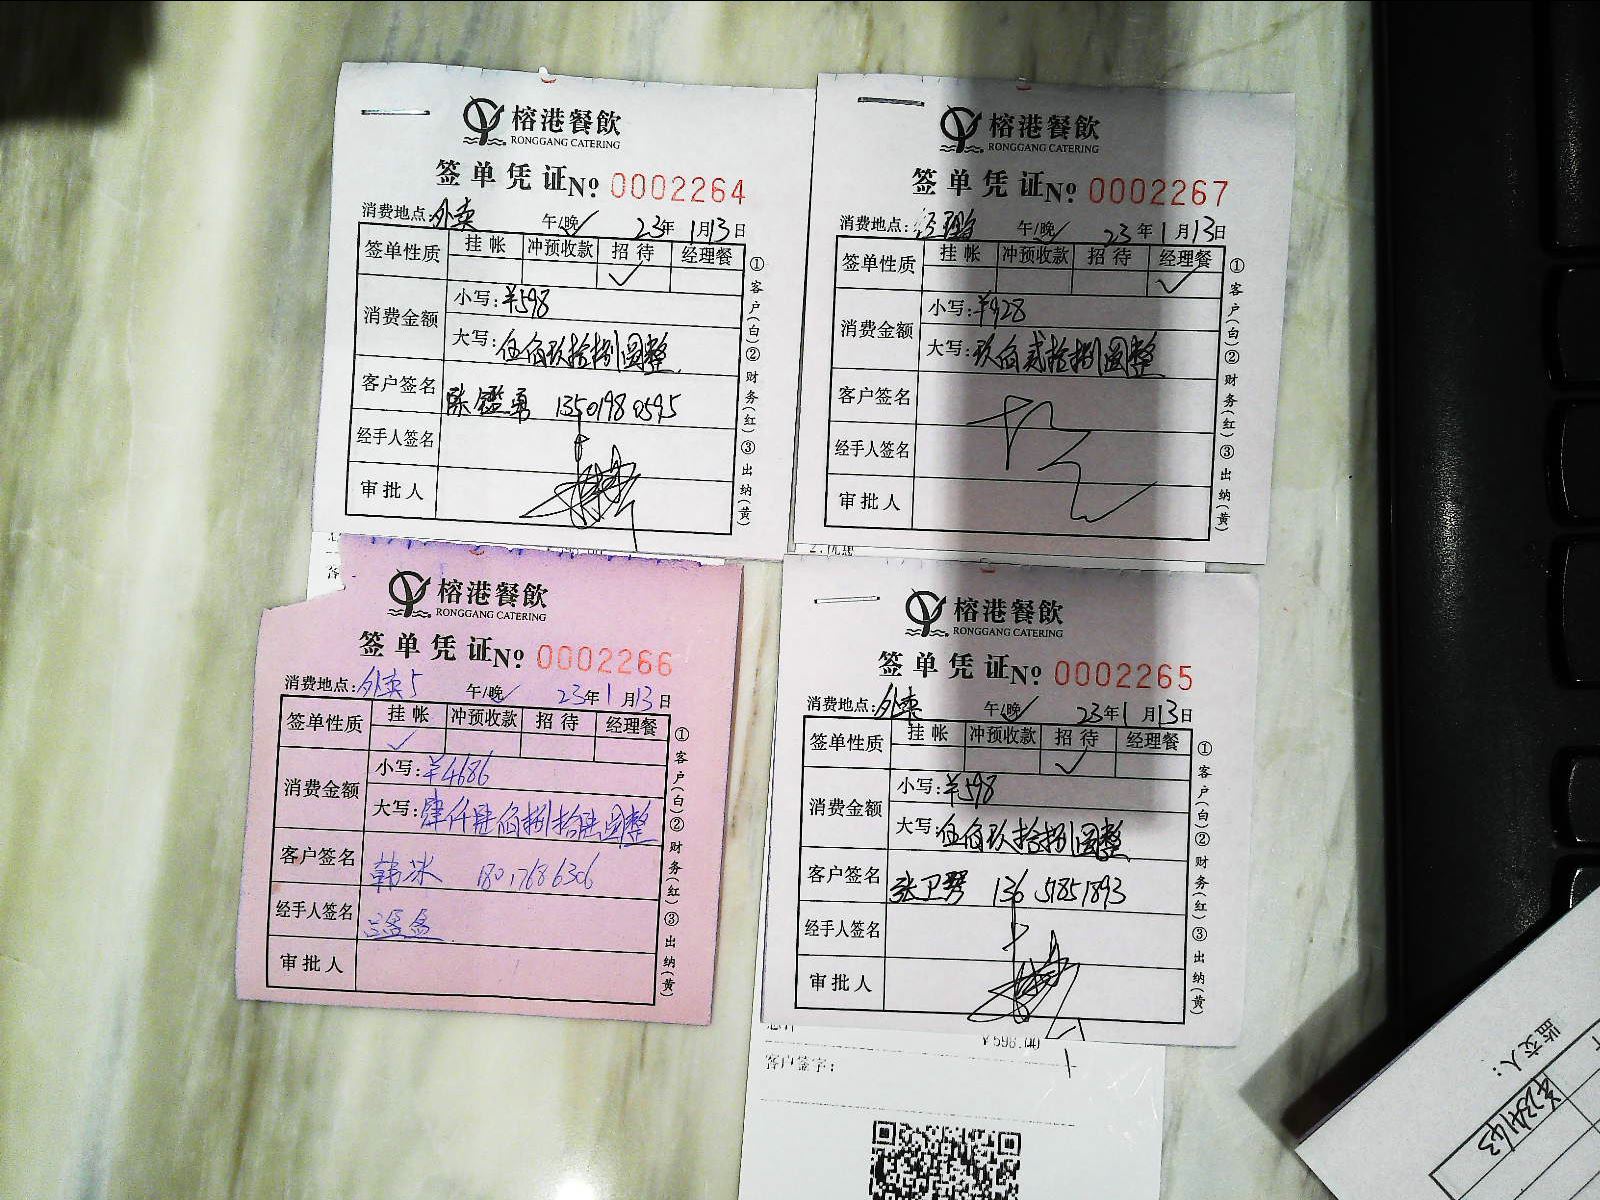 榕港餐飲
RONGGANG CATERING
签单凭证№ 0002264
消费地点:外卖 午/晚✓ 23年1月13日
签单性质 挂帐 冲预收款 招待 经理餐
✓
消费金额 小写:¥598
大写:伍佰玖拾捌圆整
客户签名 13501980595
经手人签名
审批人
①客户(白)②财务(红)③出纳(黄)
榕港餐飲
RONGGANG CATERING
签单凭证№ 0002267
消费地点:经理餐 午/晚✓ 23年1月13日
签单性质 挂帐 冲预收款 招待 经理餐
✓
消费金额 小写:¥928
大写:玖佰贰拾捌圆整
客户签名
经手人签名
审批人
①客户(白)②财务(红)③出纳(黄)
2.优惠
榕港餐飲
RONGGANG CATERING
签单凭证№ 0002266
消费地点:外卖5 午/晚✓ 23年1月13日
签单性质 挂帐 冲预收款 招待 经理餐
✓
消费金额 小写:¥4686
大写:肆仟陆佰捌拾陆圆整
客户签名 韩冰 18017686306
经手人签名
审批人
①客户(白)②财务(红)③出纳(黄)
榕港餐飲
RONGGANG CATERING
签单凭证№ 0002265
消费地点:外卖 午/晚✓ 23年1月13日
签单性质 挂帐 冲预收款 招待 经理餐
✓
消费金额 小写:¥598
大写:伍佰玖拾捌圆整
客户签名 张卫琴 13651851893
经手人签名
审批人
①客户(白)②财务(红)③出纳(黄)
¥598.00
客户签字:
监交人: